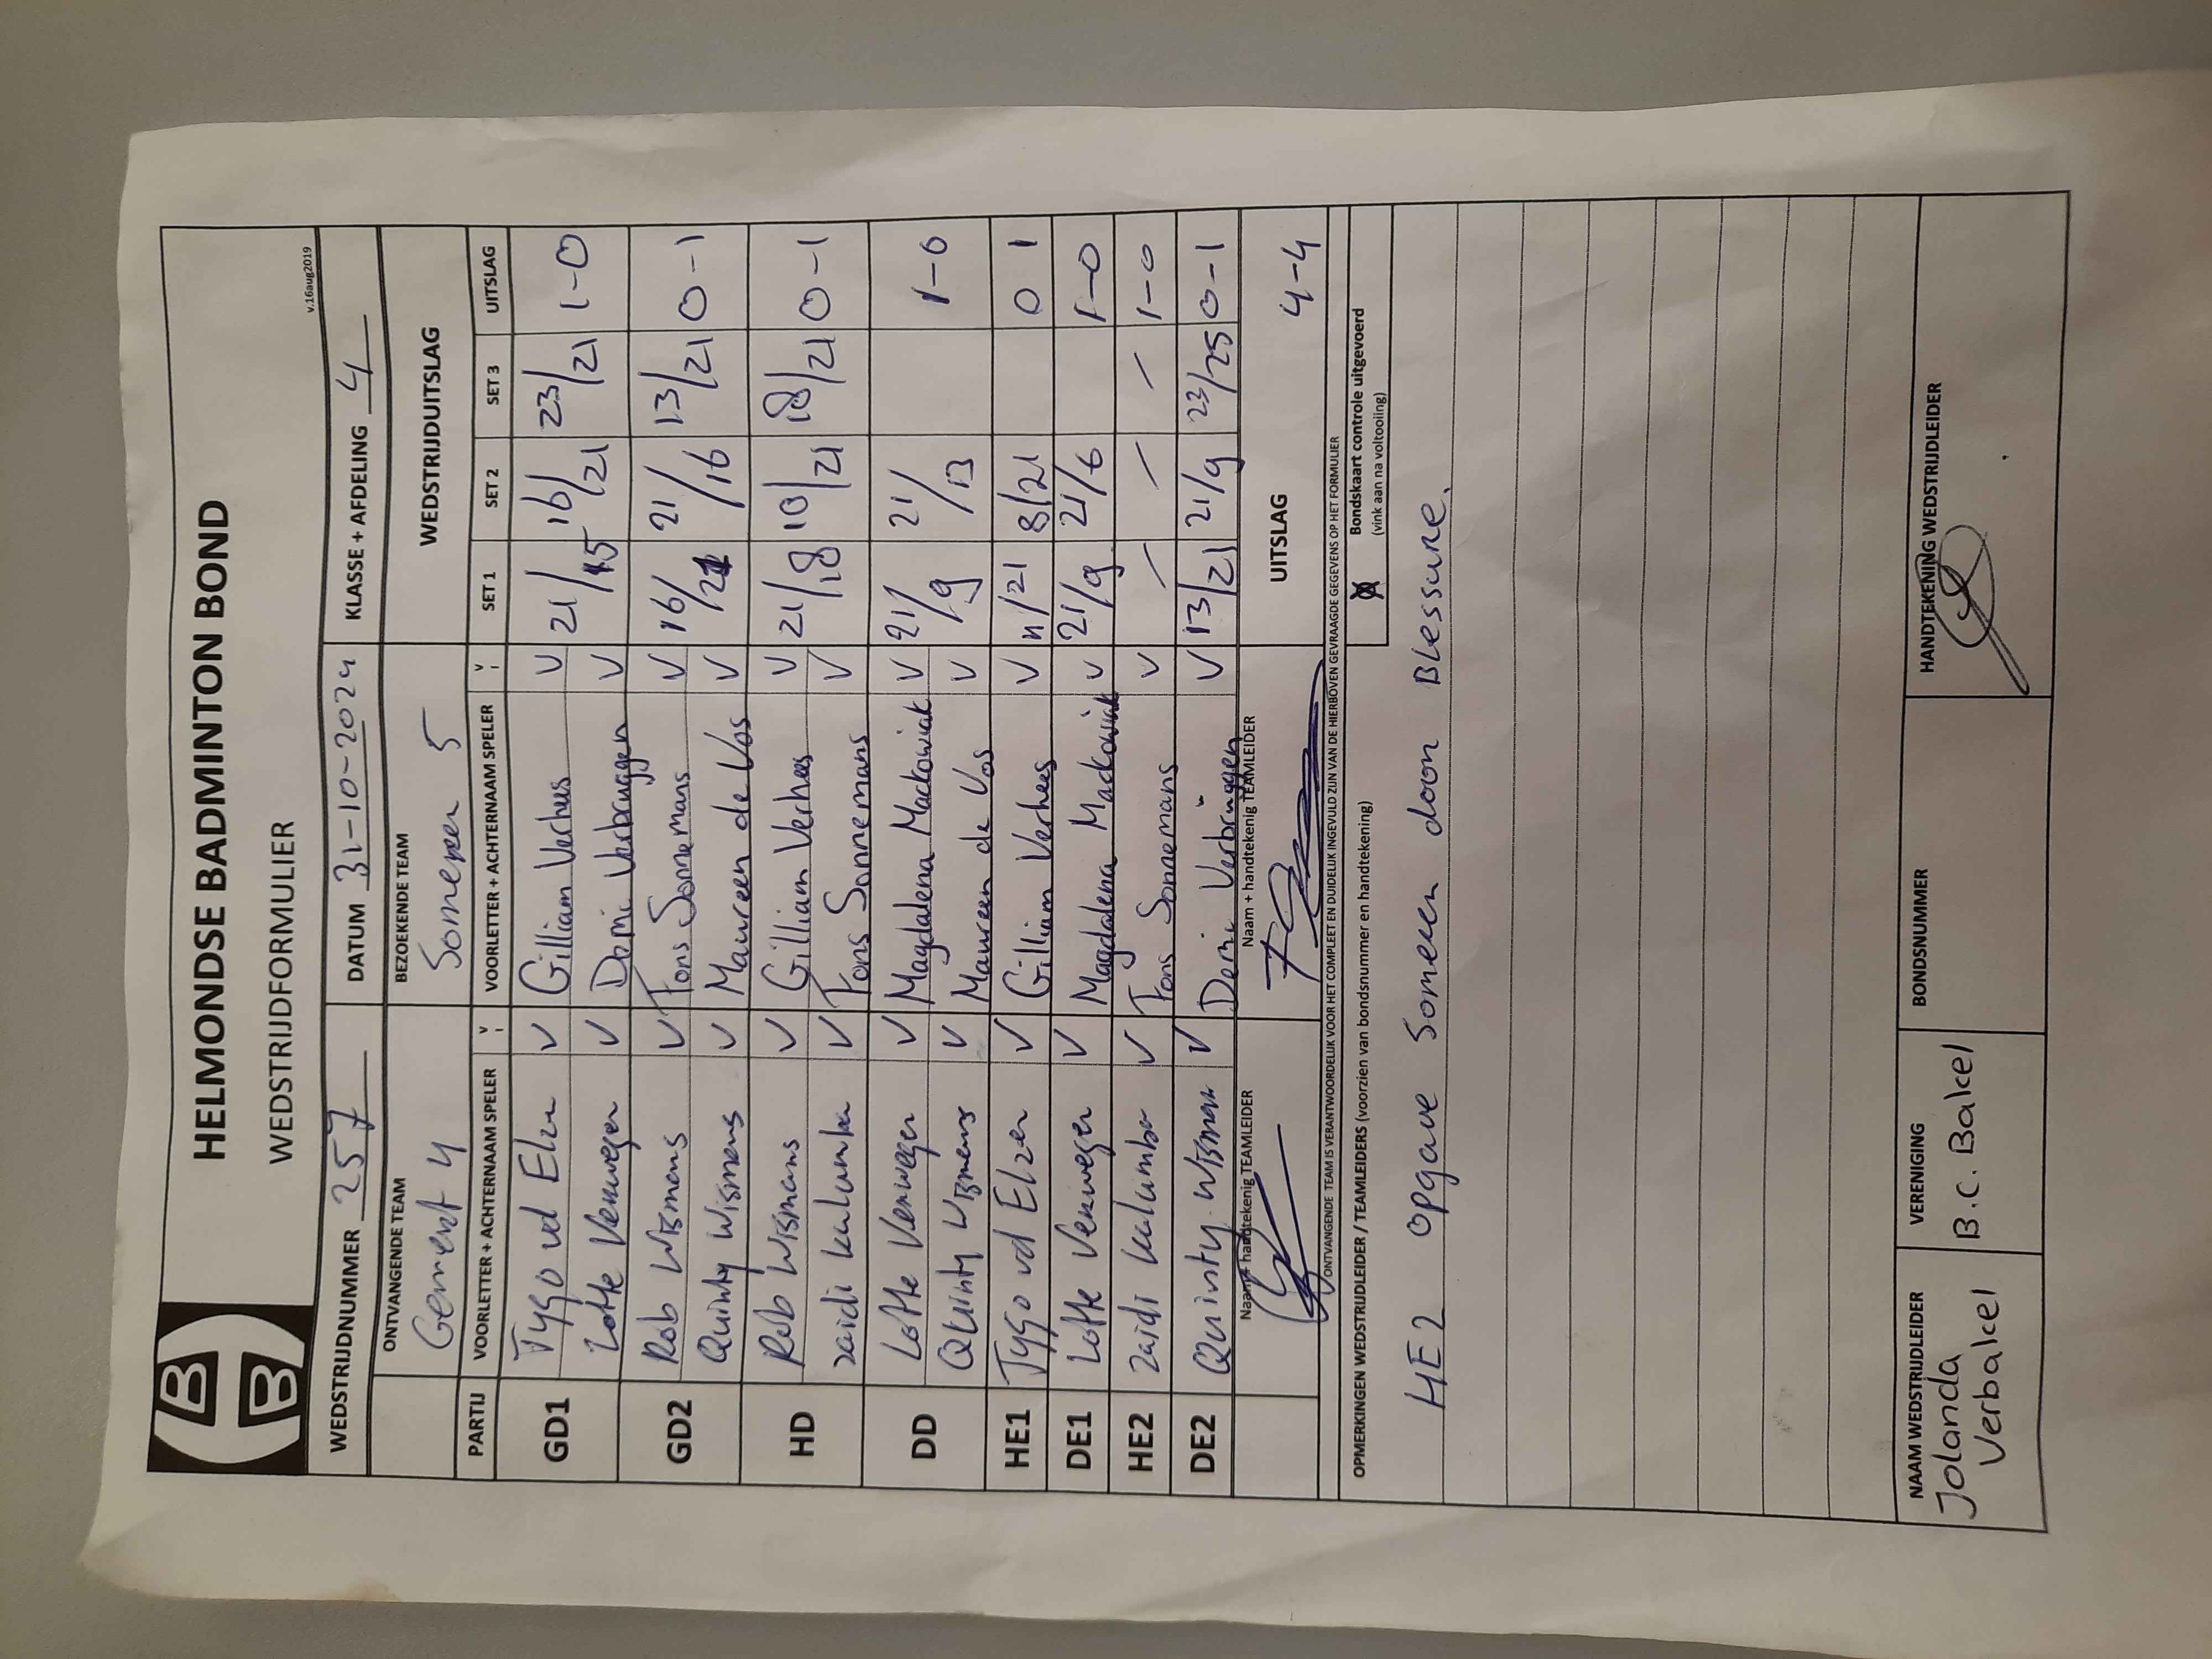 HELMONDSE BADMINTON BOND
WEDSTRIJDFORMULIER
v.16aug2019
WEDSTRIJDNUMMER 257 DATUM 31-10-2024 KLASSE + AFDELING 4
ONTVANGENDE TEAM BEZOEKENDE TEAM WEDSTRIJDUITSLAG
Gemert 4 Someren 5
PARTIJ VOORLETTER + ACHTERNAAM SPELER V VOORLETTER + ACHTERNAAM SPELER V SET 1 SET 2 SET 3 UITSLAG
GD1 Tygo vd Elzen V Gilliam Verhees V 21/15 16/21 23/21 1-0
Lotte Verwegen V Demi Verbruggen V
GD2 Rob Wismans V Fons Sonnemans V 16/21 21/16 13/21 0-1
Quinty Wismans V Maureen de Vos V
HD Rob Wismans V Gilliam Verhees V 21/18 10/21 18/21 0-1
zaidi kalumba V Fons Sonnemans V
DD Lotte Verwegen V Magdalena Mackowiak V 21/9 21/13 1-0
Quinty Wismans V Maureen de Vos V
HE1 Tygo vd Elzen V Gilliam Verhees V 11/21 8/21 0 1
DE1 Lotte Verwegen V Magdalena Mackowiak V 21/9 21/6 1-0
HE2 zaidi kalumba V Fons Sonnemans V / / / 1-0
DE2 Quinty Wismans V Demi Verbruggen V 13/21 21/9 23/25 0-1
Naam + handtekenig TEAMLEIDER Naam + handtekenig TEAMLEIDER UITSLAG 4-4
ONTVANGENDE TEAM IS VERANTWOORDELIJK VOOR HET COMPLEET EN DUIDELIJK INGEVULD ZIJN VAN DE HIERBOVEN GEVRAAGDE GEGEVENS OP HET FORMULIER
OPMERKINGEN WEDSTRIJDLEIDER / TEAMLEIDERS (voorzien van bondsnummer en handtekening) X Bondskaart controle uitgevoerd
(vink aan na voltooiing)
HE2 opgave Someren door Blessure.
NAAM WEDSTRIJDLEIDER VERENIGING BONDSNUMMER HANDTEKENING WEDSTRIJDLEIDER
Jolanda B.C. Bakel
Verbakel